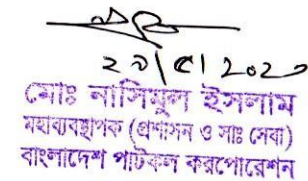 ২৯|৫|২০২০
মোঃ নাসিমুল ইসলাম
মহাব্যবস্থাপক (প্রশাসন ও সাঃ সেবা)
বাংলাদেশ পাটকল করপোরেশন